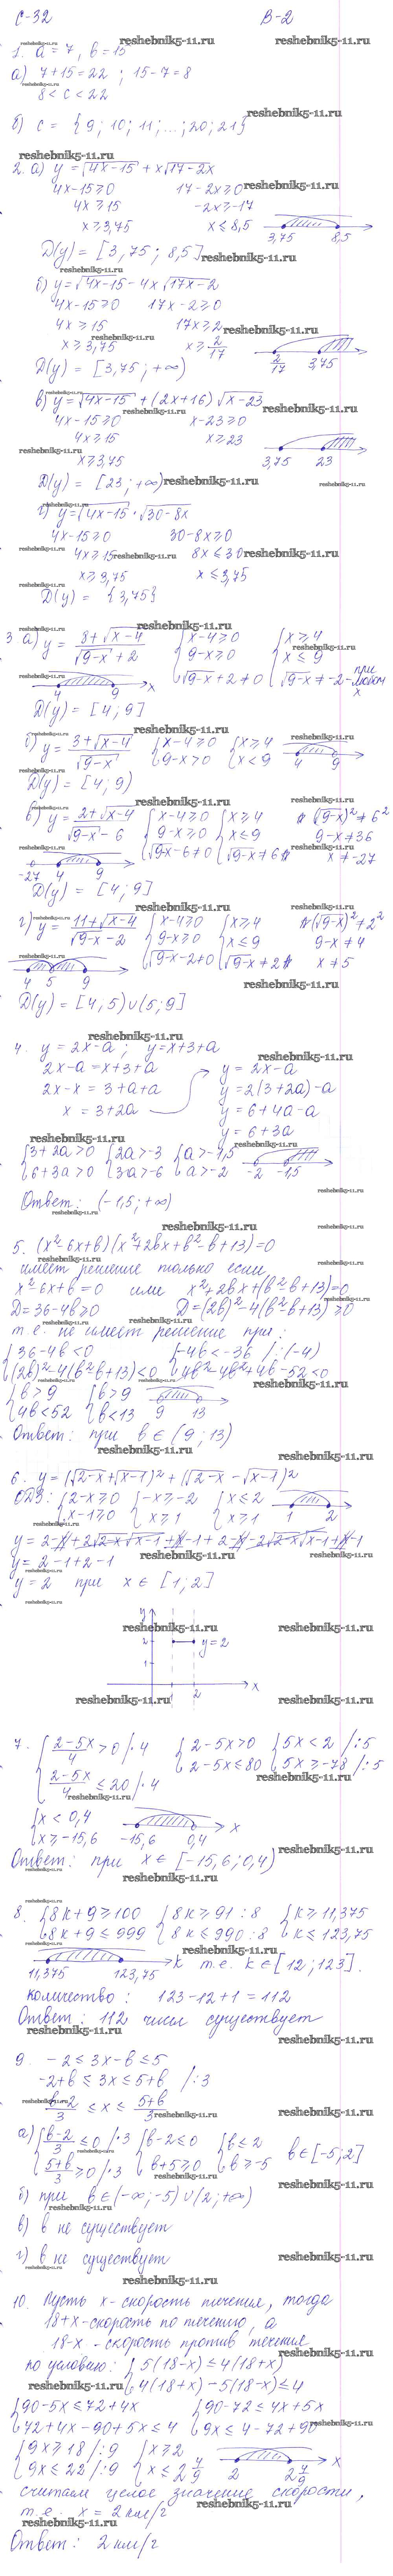 С-32 В-2
1. a = 7, b = 15
а) 7+15=22 ; 15-7=8
8 < c < 22
б) c = {9; 10; 11; ...; 20; 21}
2. а) y = √(4x-15) + x√(17-2x)
4x-15≥0 17-2x≥0
4x≥15 -2x≥-17
x≥3,75 x≤8,5
3,75 8,5
D(y) = [3,75; 8,5]
б) y = √(4x-15) - 4x√(17x-2)
4x-15≥0 17x-2≥0
4x≥15 17x≥2
x≥3,75 x≥2/17
2/17 3,75
D(y) = [3,75; +∞)
в) y = √(4x-15) + (2x+16)√(x-23)
4x-15≥0 x-23≥0
4x≥15 x≥23
x≥3,75
3,75 23
D(y) = [23; +∞)
г) y = √(4x-15) · √(30-8x)
4x-15≥0 30-8x≥0
4x≥15 8x≤30
x≥3,75 x≤3,75
D(y) = {3,75}
3. а) y = (8+√(x-4))/(√(9-x)+2) {x-4≥0 {x≥4
{9-x≥0 {x≤9
{√(9-x)+2≠0 {√(9-x)≠-2 - при любом x
4 9 x
D(y) = [4; 9]
б) y = (3+√(x-4))/√(9-x) {x-4≥0 {x≥4
{9-x>0 {x<9
4 9
D(y) = [4; 9)
в) y = (2+√(x-4))/(√(9-x)-6) {x-4≥0 {x≥4 (√(9-x))²≠6²
{9-x≥0 {x≤9 9-x≠36
{√(9-x)-6≠0 {√(9-x)≠6 x≠-27
-27 4 9
D(y) = [4; 9]
г) y = (11+√(x-4))/(√(9-x)-2) {x-4≥0 {x≥4 (√(9-x))²≠2²
{9-x≥0 {x≤9 9-x≠4
{√(9-x)-2≠0 {√(9-x)≠2 x≠5
4 5 9
D(y) = [4; 5)∪(5; 9]
4. y = 2x-a; y = x+3+a
2x-a = x+3+a y = 2x-a
2x-x = 3+a+a y = 2(3+2a)-a
x = 3+2a y = 6+4a-a
y = 6+3a
{3+2a>0 {2a>-3 {a>-1,5
{6+3a>0 {3a>-6 {a>-2
-2 -1,5
Ответ: (-1,5; +∞)
5. (x²-6x+b)(x²+2bx+b²-b+13)=0
имеет решение только если
x²-6x+b=0 или x²+2bx+(b²-b+13)=0
D=36-4b≥0 D=(2b)²-4(b²-b+13)≥0
т.е. не имеет решение при:
{36-4b<0 {-4b<-36 /:(-4)
{(2b)²-4(b²-b+13)<0 {4b²-4b²+4b-52<0
{b>9 {b>9
{4b<52 {b<13
9 13
Ответ: при b∈(9; 13)
6. y = (√(2-x)+√(x-1))² + (√(2-x)-√(x-1))²
ОДЗ: {2-x≥0 {-x≥-2 {x≤2
{x-1≥0 {x≥1 {x≥1
1 2
y = 2-x+2√(2-x)√(x-1)+x-1+2-x-2√(2-x)√(x-1)+x-1
y = 2-1+2-1
y = 2 при x∈[1; 2]
y
2 y=2
1
1 2 x
7. {(2-5x)/4>0 /·4 {2-5x>0 {5x<2 /:5
{(2-5x)/4≤20 /·4 {2-5x≤80 {5x≥-78 /:5
{x<0,4
{x≥-15,6
-15,6 0,4 x
Ответ: при x∈[-15,6; 0,4)
8. {8k+9≥100 {8k≥91 :8 {k≥11,375
{8k+9≤999 {8k≤990 :8 {k≤123,75
11,375 123,75 k т.е. k∈[12; 123].
количество: 123-12+1=112
Ответ: 112 чисел существует
9. -2≤3x-b≤5
-2+b≤3x≤5+b /:3
(b-2)/3≤x≤(5+b)/3
а) {(b-2)/3≤0 /·3 {b-2≤0 {b≤2 b∈[-5; 2]
{(5+b)/3≥0 /·3 {b+5≥0 {b≥-5
б) при b∈(-∞; -5)∪(2; +∞)
в) b не существует
г) b не существует
10. Пусть x - скорость течения, тогда
18+x - скорость по течению, а
18-x - скорость против течения
по условию: {5(18-x)≤4(18+x)
{4(18+x)-5(18-x)≤4
{90-5x≤72+4x {90-72≤4x+5x
{72+4x-90+5x≤4 {9x≤4-72+90
{9x≥18 /:9 {x≥2
{9x≤22 /:9 {x≤2 4/9
2 2 4/9 x
считаем целое значение скорости,
т.е. x = 2 км/г
Ответ: 2 км/г
reshebnik5-11.ru